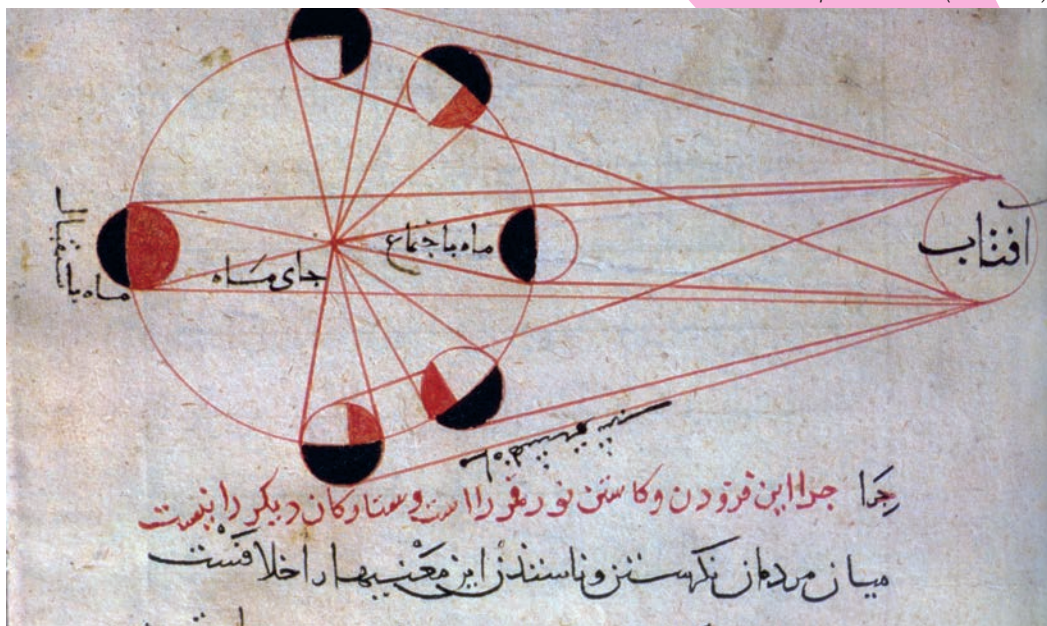 افتاب
ماه باجتماع
جای ماه
ماه باستقبال
چرا چرا این فزودن وکاستن نور قمر را است وستارکان دیکر را نیست
میان مردمان نکرستن وناسندن این معنیها را خلافست